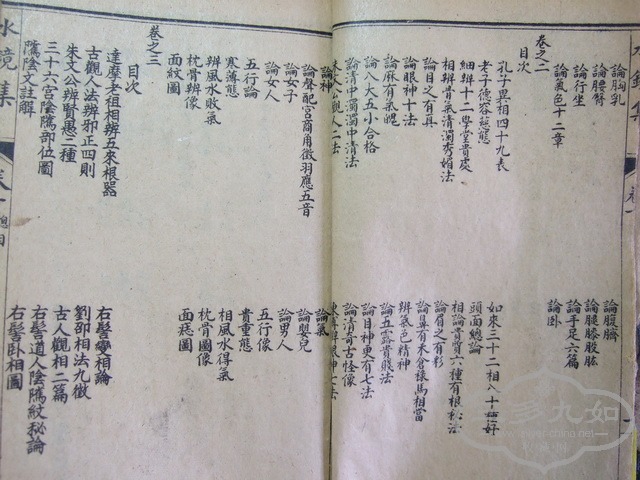 論胸乳
論腹臍
論腰臀
論腿膝股肱
論行坐
論手足六篇
論氣色十二章
論卧
卷之二
目次
孔子異相四十九表
如來三十二相八十種好
老子德容莊態
頭面總論
細辨十二學堂貴處
相論貴賤六種有根秘法
相辨骨氣清濁秀媚法
論眉之有彩
論目之有真
論鼻有米倉樣馬相當
論眼神十法
辨氣色精神
論麻有氣魄
論五露貴賤法
論八大五小合格
論目神更有七法
論清中濁濁中清法
論清奇古怪像
論神
論氣
論聲配宮商角徵羽應五音
論嬰兒
論女子
論男人
論女人
五行像
五行論
貴重態
寒薄態
相風水得氣
辨風水敗氣
枕骨圖像
枕骨辨像
面痣圖
面紋圖
卷之三
目次
達摩老祖相辨五來根器
右髻變相論
古觀人法辨邪正四則
劉邵相法九徵
朱文公辨賢愚三種
古人觀相二篇
三十六宮陰騭部位圖
右髻道人陰騭紋秘論
騭陰文註解
右髻卧相圖
水鏡集
卷一
總目